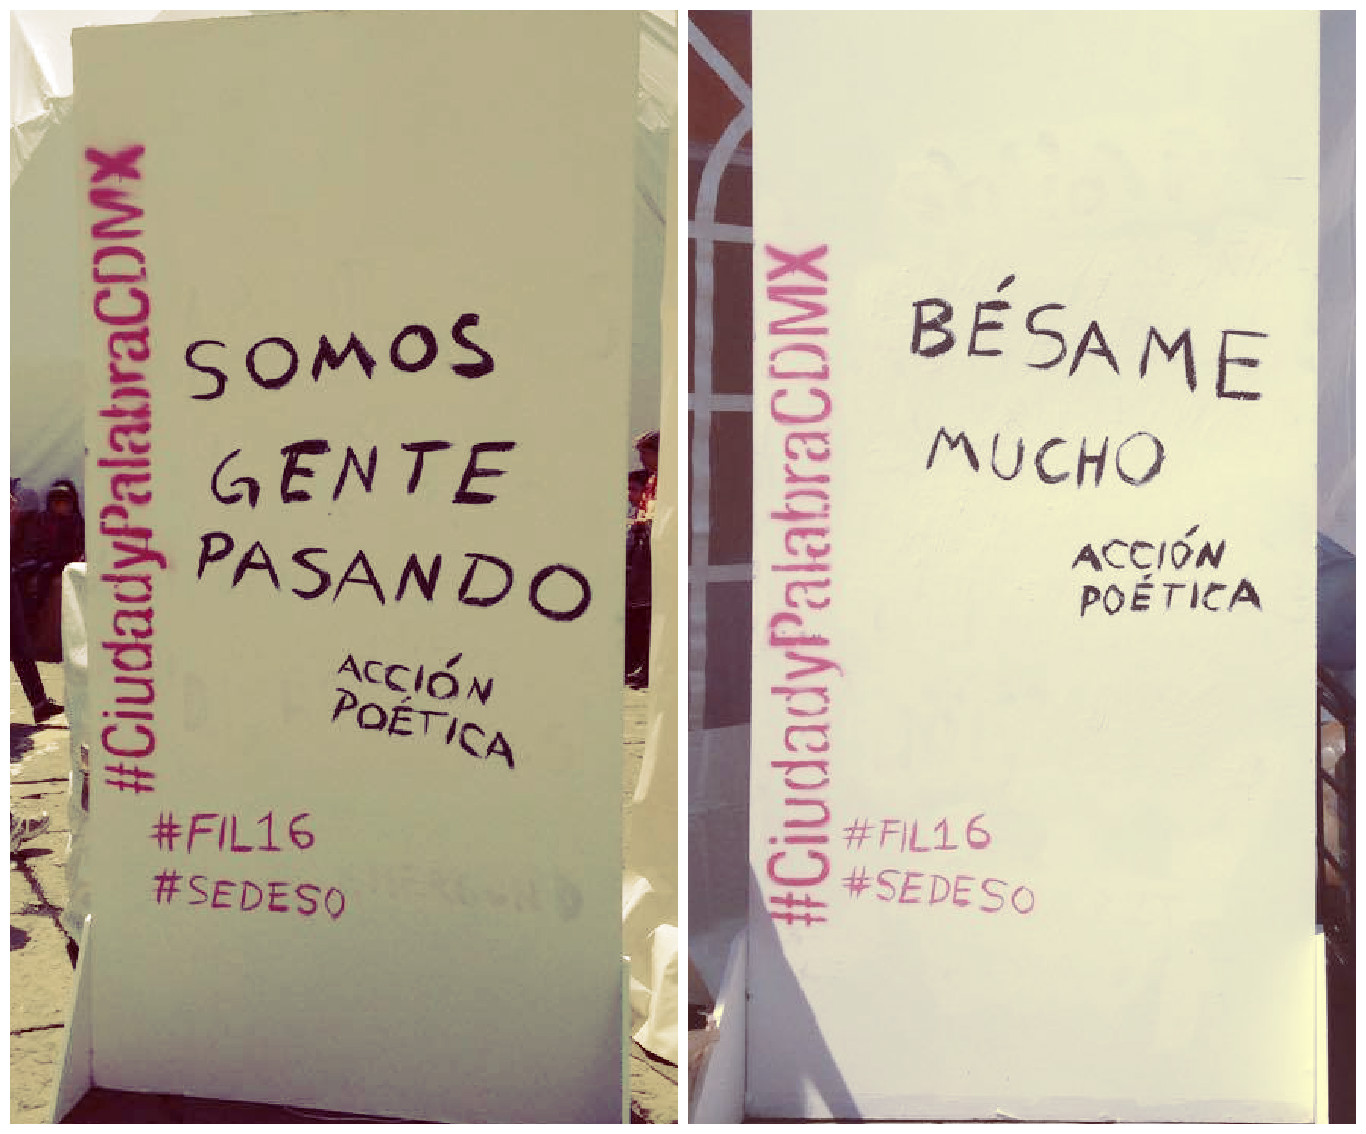 #CiudadyPalabraCDMX
SOMOS
GENTE
PASANDO
ACCIÓN
POÉTICA
#FIL16
#SEDESO
#CiudadyPalabraCDMX
BÉSAME
MUCHO
ACCIÓN
POÉTICA
#FIL16
#SEDESO